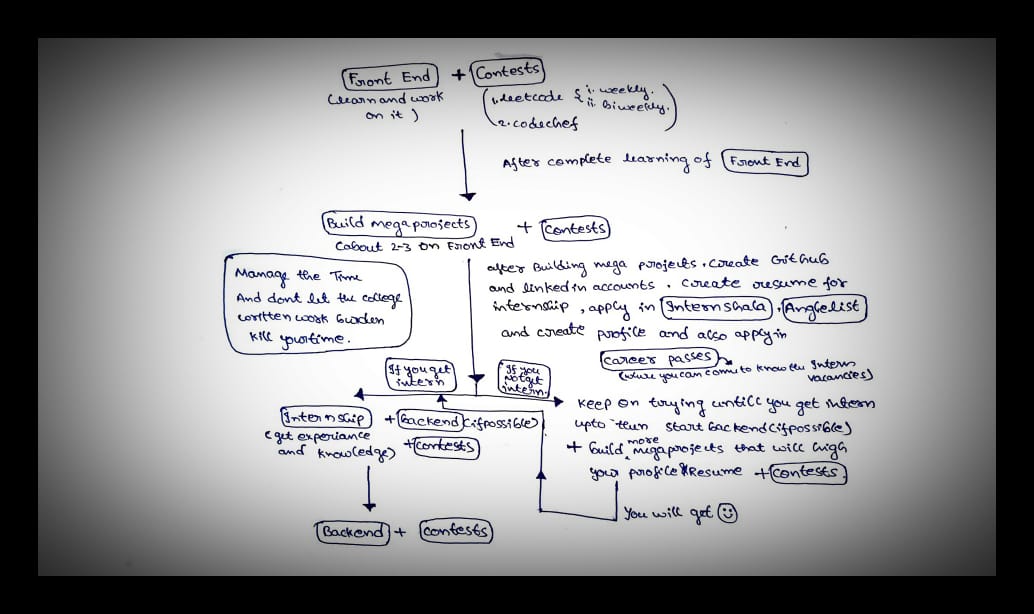 Front End + Contests
(learn and work
on it)
1. leetcode { i. weekly.
ii. biweekly.
2. codechef
After complete learning of Front End
Build mega projects + Contests
(about 2-3 on Front End
Manage the Time
And dont let the college
written work burden
kill your time.
after Building mega projects, create GitHub
and linkedin accounts, create resume for
internship, apply in Internshala, Anglelist
and create profile and also apply in
career passes
(where you can come to know the Intern
vacancies)
If you get
intern
If you
not get
intern.
Internship + Backend (if possible)
(get experiance
and knowledge) + contests
keep on trying untill you get intern
upto then start backend (if possible)
+ build more mega projects that will high
your profile & Resume + contests.
You will get ☺
Backend + contests